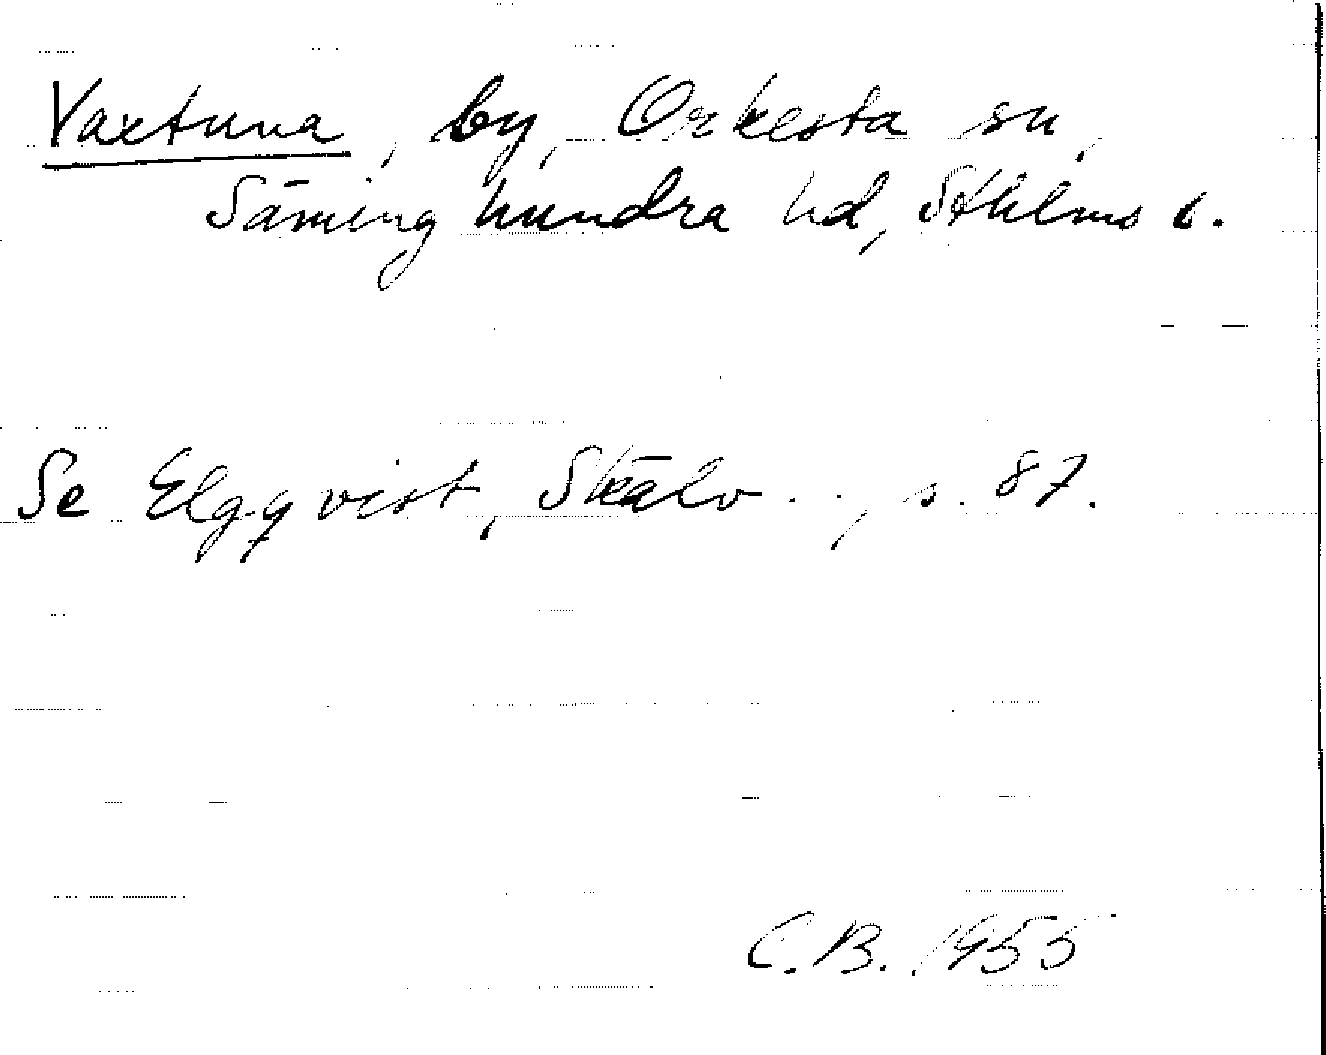 Vaxtuna, by, Orkesta sn,
Säminghundra hd, Sthlms l.
Se Elgqvist, Skälv . . , s. 87.
C.B. 1955